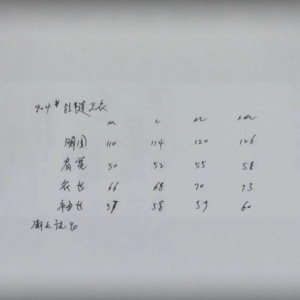 904# 卫衣
M L XL XXL
胸围 110 114 120 126
肩宽 50 52 55 58
衣长 66 68 70 73
袖长 57 58 59 60